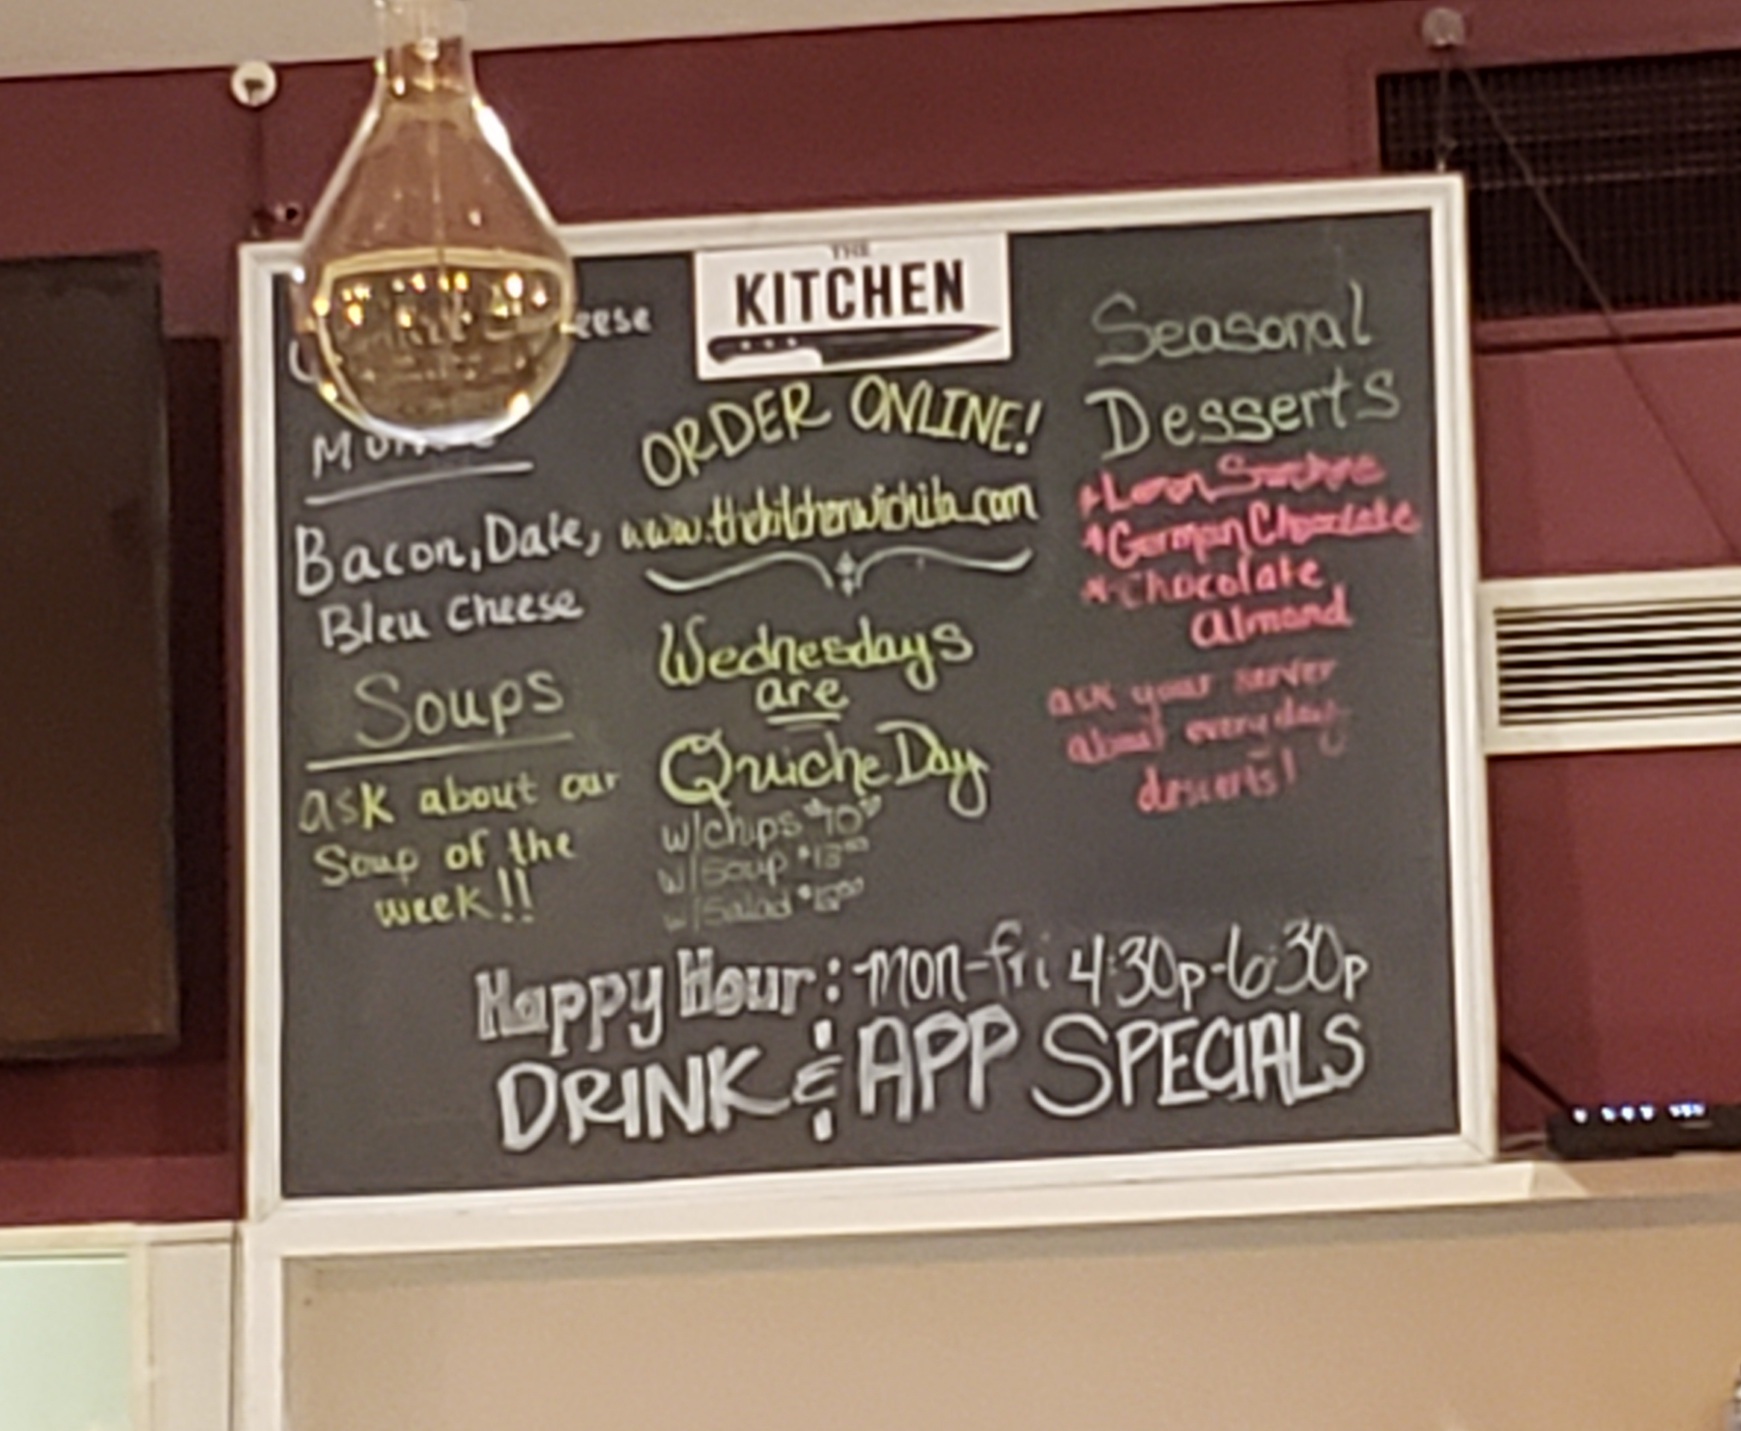 THE
KITCHEN
ORDER ONLINE!
www.thekitchenwichita.com
Wednesdays
are
Quiche Day
w/chips $10
w/Soup $13⁰⁰
w/Salad
Bacon, Date,
Bleu Cheese
Soups
ask about our
Soup of the
week!!
Seasonal
Desserts
*German Chocolate
*Chocolate
Almond
ask your server
about everyday
desserts!
Happy Hour: mon-fri 4:30p-6:30p
DRINK & APP SPECIALS